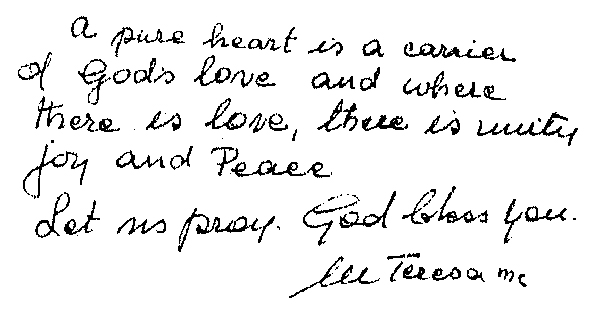 A pure heart is a carrier
of Gods love and where
there is love, there is unity
joy and Peace
Let us pray. God bless you.
M Teresa mc